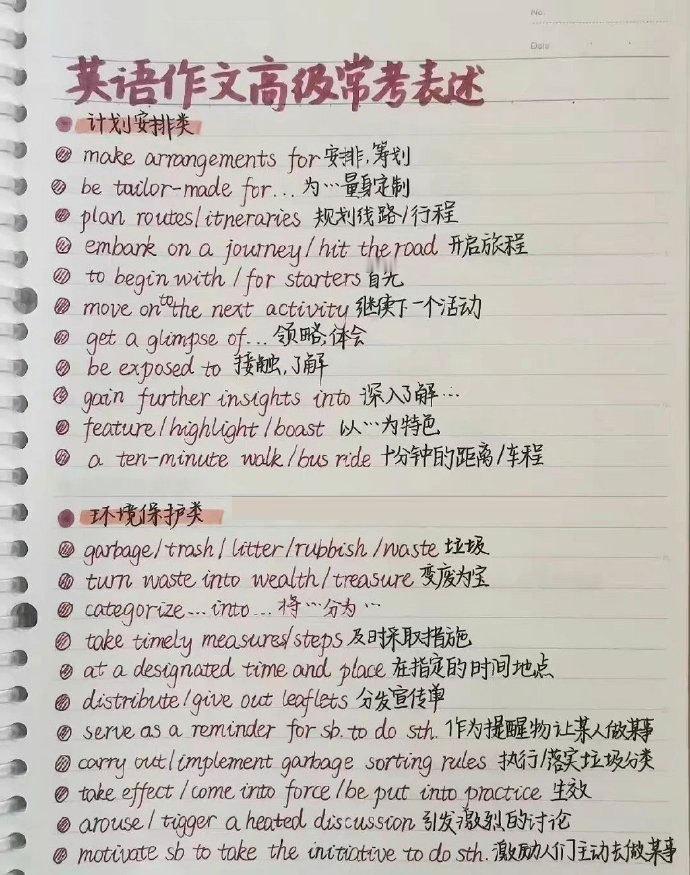 No.
Date
英语作文高级常考表述
计划安排类
make arrangements for 安排,筹划
be tailor-made for... 为…量身定制
plan routes/itneraries 规划线路/行程
embark on a journey/hit the road 开启旅程
to begin with/for starters 首先
move on to the next activity 继续下一个活动
get a glimpse of... 领略,体会
be exposed to 接触,了解
gain further insights into 深入了解…
feature/highlight/boast 以…为特色
a ten-minute walk/bus ride 十分钟的距离/车程
环境保护类
garbage/trash/litter/rubbish/waste 垃圾
turn waste into wealth/treasure 变废为宝
categorize...into... 将…分为…
take timely measures/steps 及时采取措施
at a designated time and place 在指定的时间地点
distribute/give out leaflets 分发宣传单
serve as a reminder for sb. to do sth. 作为提醒物让某人做某事
carry out/implement garbage sorting rules 执行/落实垃圾分类
take effect/come into force/be put into practice 生效
arouse/tigger a heated discussion 引发激烈的讨论
motivate sb to take the initiative to do sth. 激励人们主动去做某事